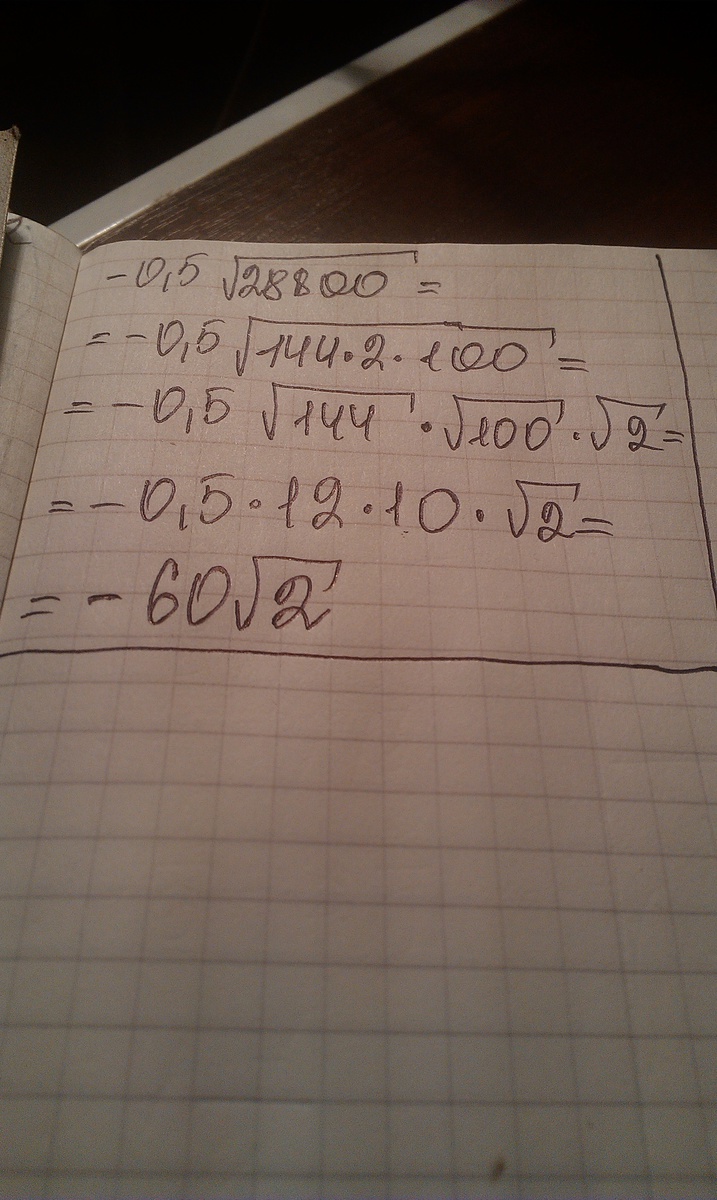 -0,5 √28800 =
= -0,5 √144·2·100 =
= -0,5 √144 · √100 · √2 =
= -0,5·12·10·√2 =
= -60√2